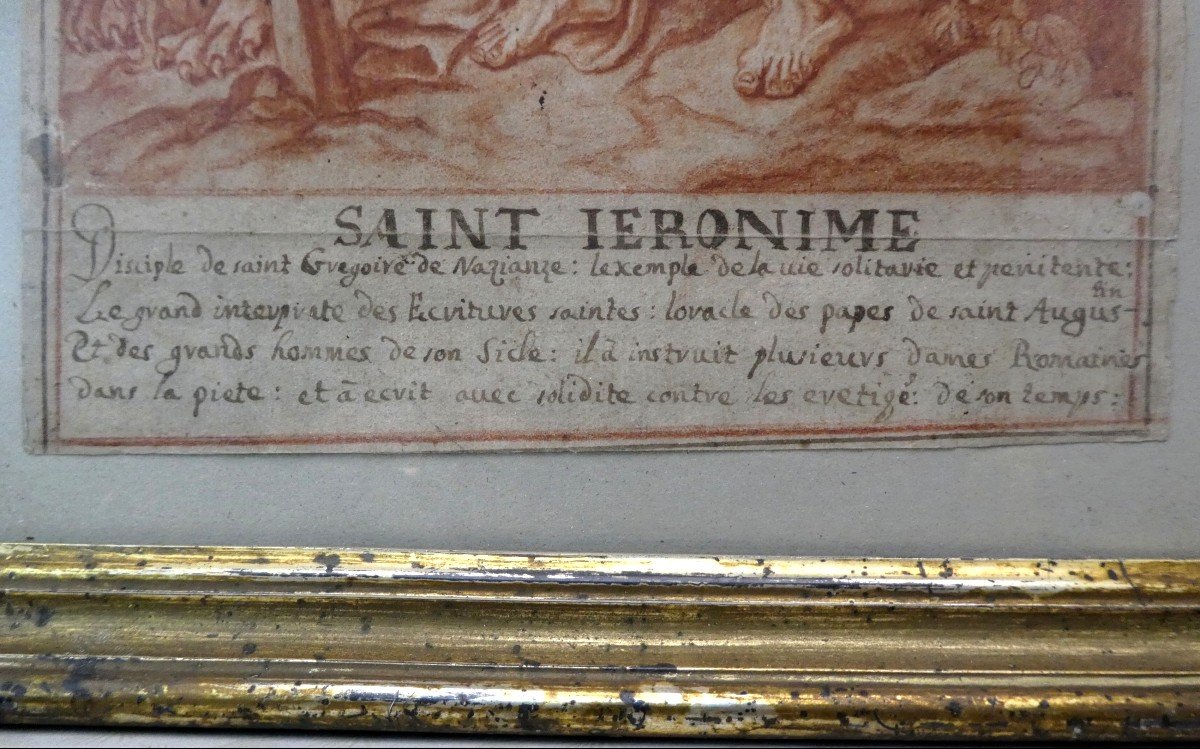 SAINT IERONIME
Disciple de saint Gregoire de Nazianze: lexemple de la uie solitarie et penitente:
Le grand interprate des Ecritures saintes: loracle des papes de saint Augus-tin
Et des grands hommes de son Sicle: il â instruit plusieurs dames Romaines
dans la piete: et â ecrit auec solidite contre les eretige: de son temps: